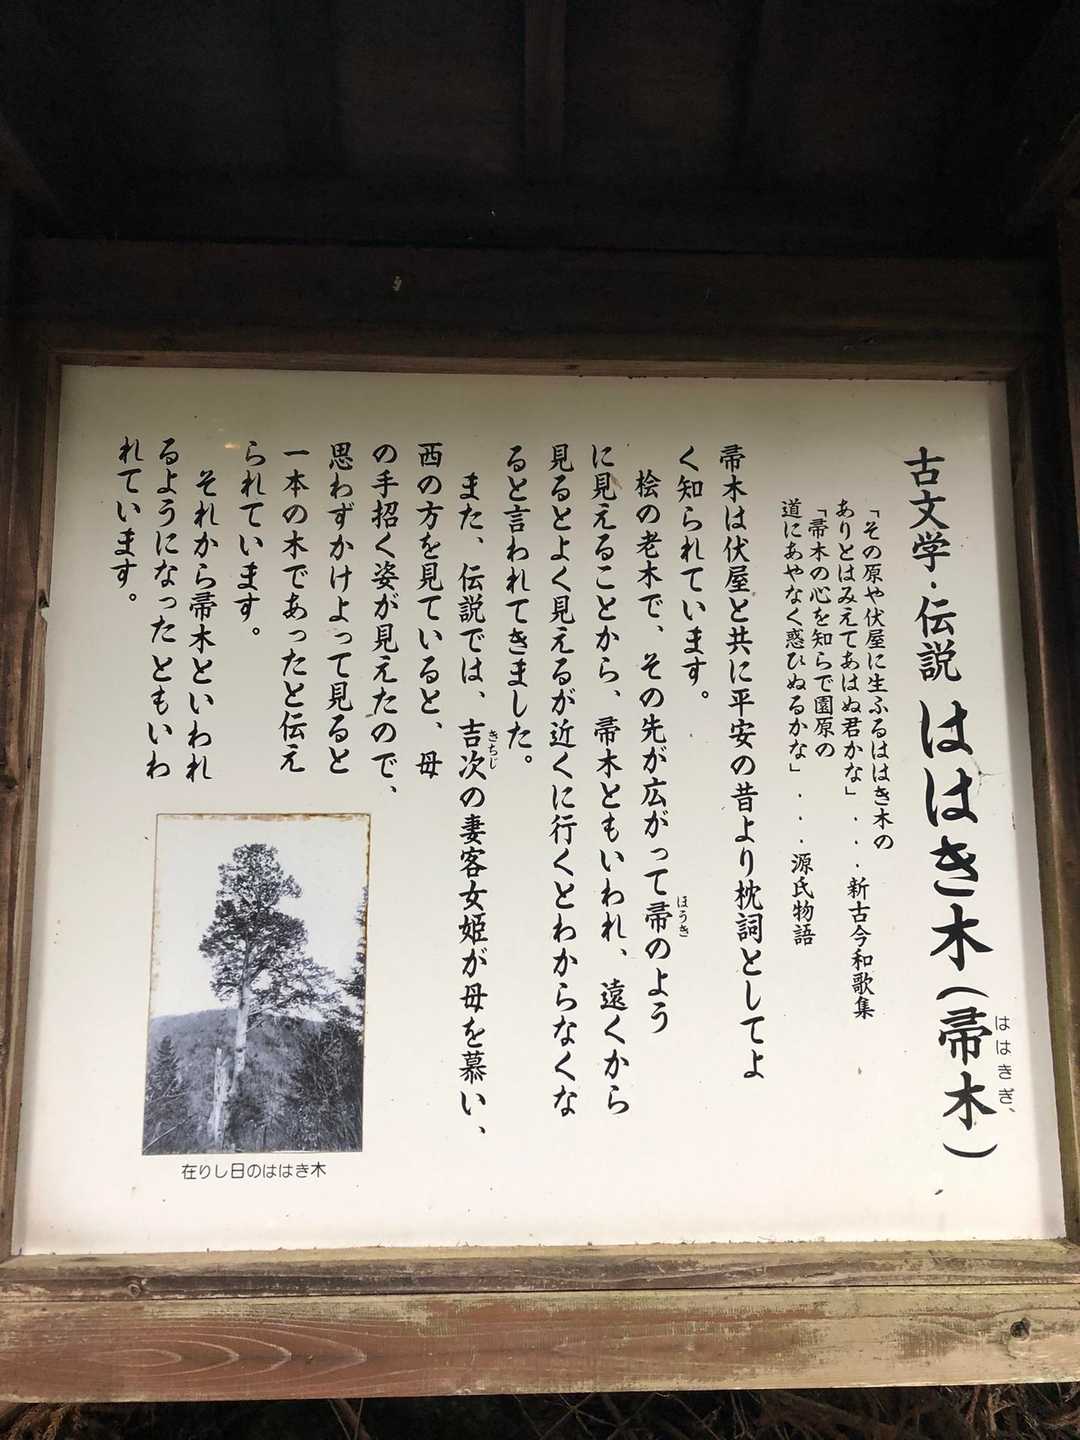 古文学・伝説 ははき木（帚木）
ははきぎ、
「その原や伏屋に生ふるははき木の
ありとはみえてあはぬ君かな」・・・新古今和歌集
「帚木の心を知らで園原の
道にあやなく惑ひぬるかな」・・・源氏物語
帚木は伏屋と共に平安の昔より枕詞としてよ
く知られています。
桧の老木で、その先が広がって帚のよう
ほうき
に見えることから、帚木ともいわれ、遠くから
見るとよく見えるが近くに行くとわからなくな
ると言われてきました。
また、伝説では、吉次の妻客女姫が母を慕い、
きちじ
西の方を見ていると、母
の手招く姿が見えたので、
思わずかけよって見ると
一本の木であったと伝え
られています。
それから帚木といわれ
るようになったともいわ
れています。
在りし日のははき木